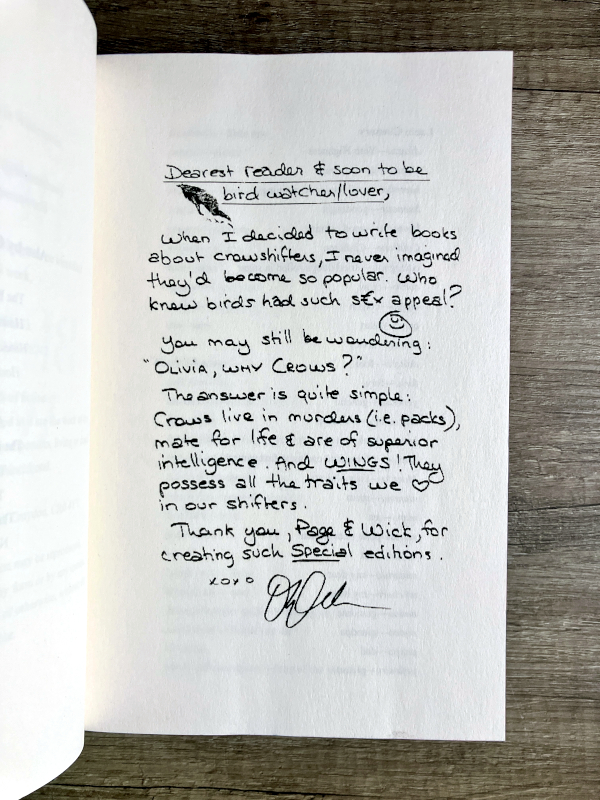 Dearest reader & soon to be
bird watcher/lover,
When I decided to write books
about crowshifters, I never imagined
they'd become so popular. Who
knew birds had such sex appeal?
You may still be wondering:
"OLIVIA, WHY CROWS?"
The answer is quite simple:
Crows live in murders (i.e. packs),
mate for life & are of superior
intelligence. And WINGS! They
possess all the traits we ♡
in our shifters.
Thank you, Page & Wick, for
creating such Special editions.
xoxo